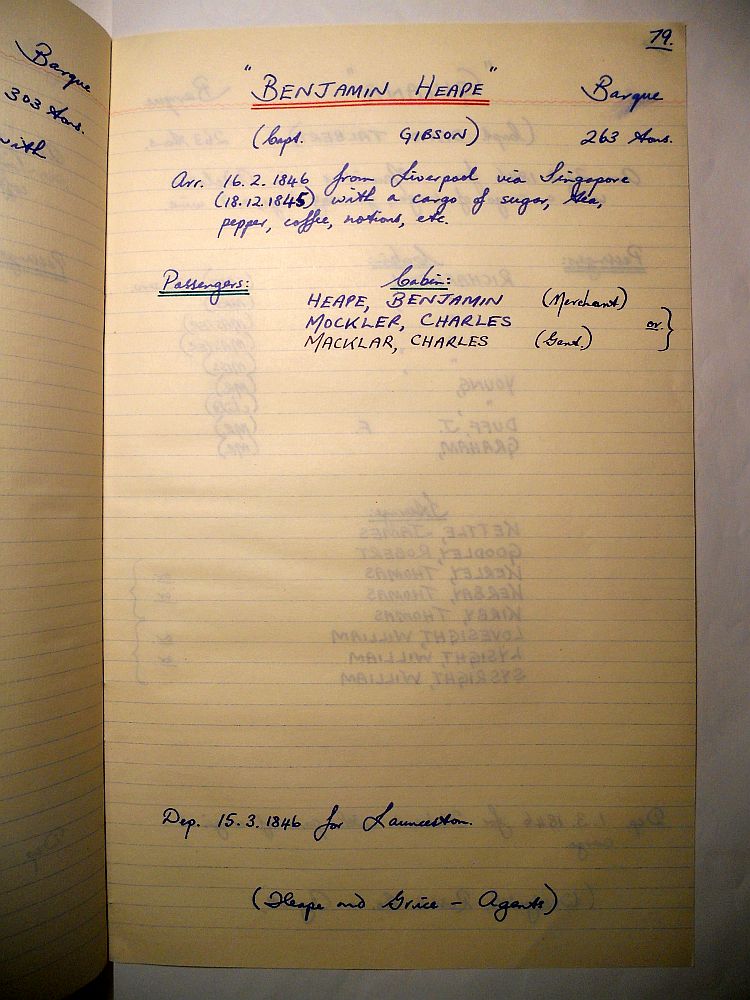 Barque
303 tons.
with
79.
"BENJAMIN HEAPE" Barque
(Capt. GIBSON) 263 tons.
Arr. 16.2.1846 from Liverpool via Singapore
(18.12.1845) with a cargo of sugar, tea,
pepper, coffee, notions, etc.
Passengers: Cabin:
HEAPE, BENJAMIN (Merchant)
MOCKLER, CHARLES or }
MACKLAR, CHARLES (Gent.)
Dep. 15.3.1846 for Launceston.
(Heape and Grice - Agents)